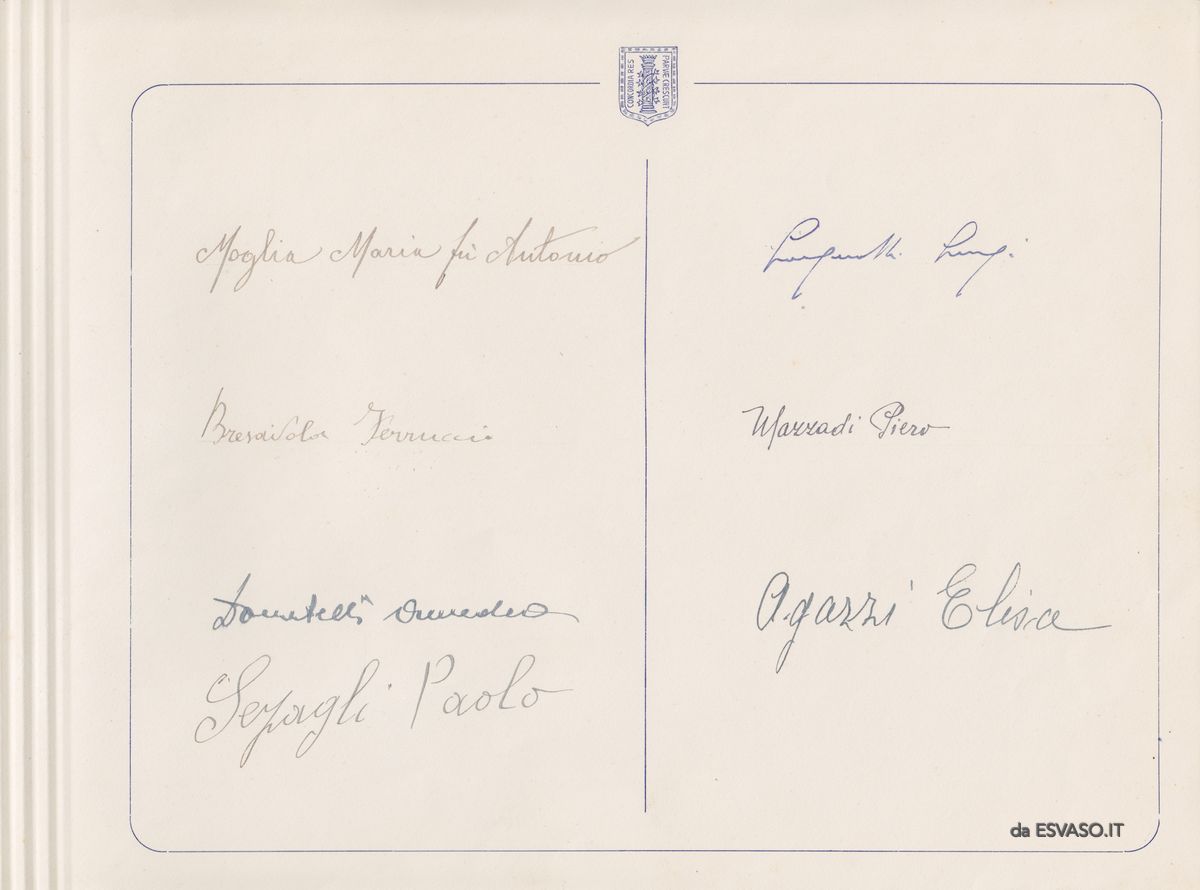 CONCORDIA RES
PARVAE CRESCUNT
Moglia Maria fù Antonio
Bresavola Ferruccio
Donatelli Amedeo
Paolo
Luigi
Mazzadi Piero
Agazzi Elisa
da ESVASO.IT